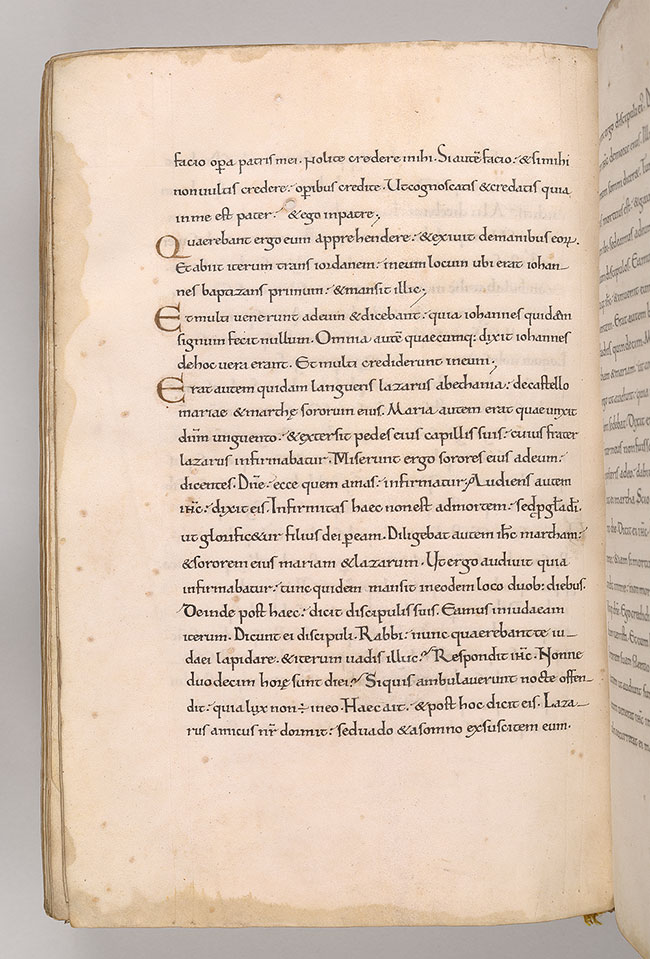 facio opa patris mei. Nolite credere mihi. Si autē facio: & si mihi
non vultis credere: opibus credite. Ut cognoscatis & credatis quia
in me est pater: & ego in patre;
Quaerebant ergo eum apprehendere: & exivit de manibus eoꝝ.
Et abiit iterum trans iordanem: in eum locum ubi erat iohan-
nes baptizans primum: & mansit illic;
Et multi venerunt ad eum & dicebant: quia iohannes quidem
signum fecit nullum. Omnia autē quaecumq: dixit iohannes
de hoc vera erant. Et multi crediderunt in eum;
Erat autem quidam languens lazarus a bethania: de castello
mariae & marthę sororum eius. Maria autem erat quae unxit
dn̄m unguento: & extersit pedes eius capillis suis: cuius frater
lazarus infirmabatur. Miserunt ergo sorores eius ad eum:
dicentes. Dn̄e: ecce quem amas: infirmatur; Audiens autem
ih̄c: dixit eis. Infirmitas haec non est ad mortem: sed p gl̄a di.
ut glorific&ur filius dei p eam. Diligebat autem ih̄c martham:
& sororem eius mariam & lazarum. Ut ergo audivit quia
infirmabatur: tunc quidem mansit in eodem loco duob: diebus.
Deinde post haec: dicit discipulis suis. Eamus in iudaeam
iterum. Dicunt ei discipuli. Rabbi: nunc quaerebant te iu-
daei lapidare: & iterum vadis illuc? Respondit ih̄c. Nonne
duodecim horę sunt diei? Si quis ambulaverit nocte offen-
dit: quia lux non ÷ in eo. Haec ait: & post hoc dicit eis. Laza-
rus amicus nr̄ dormit: sed vado & a somno exsuscitem eum.